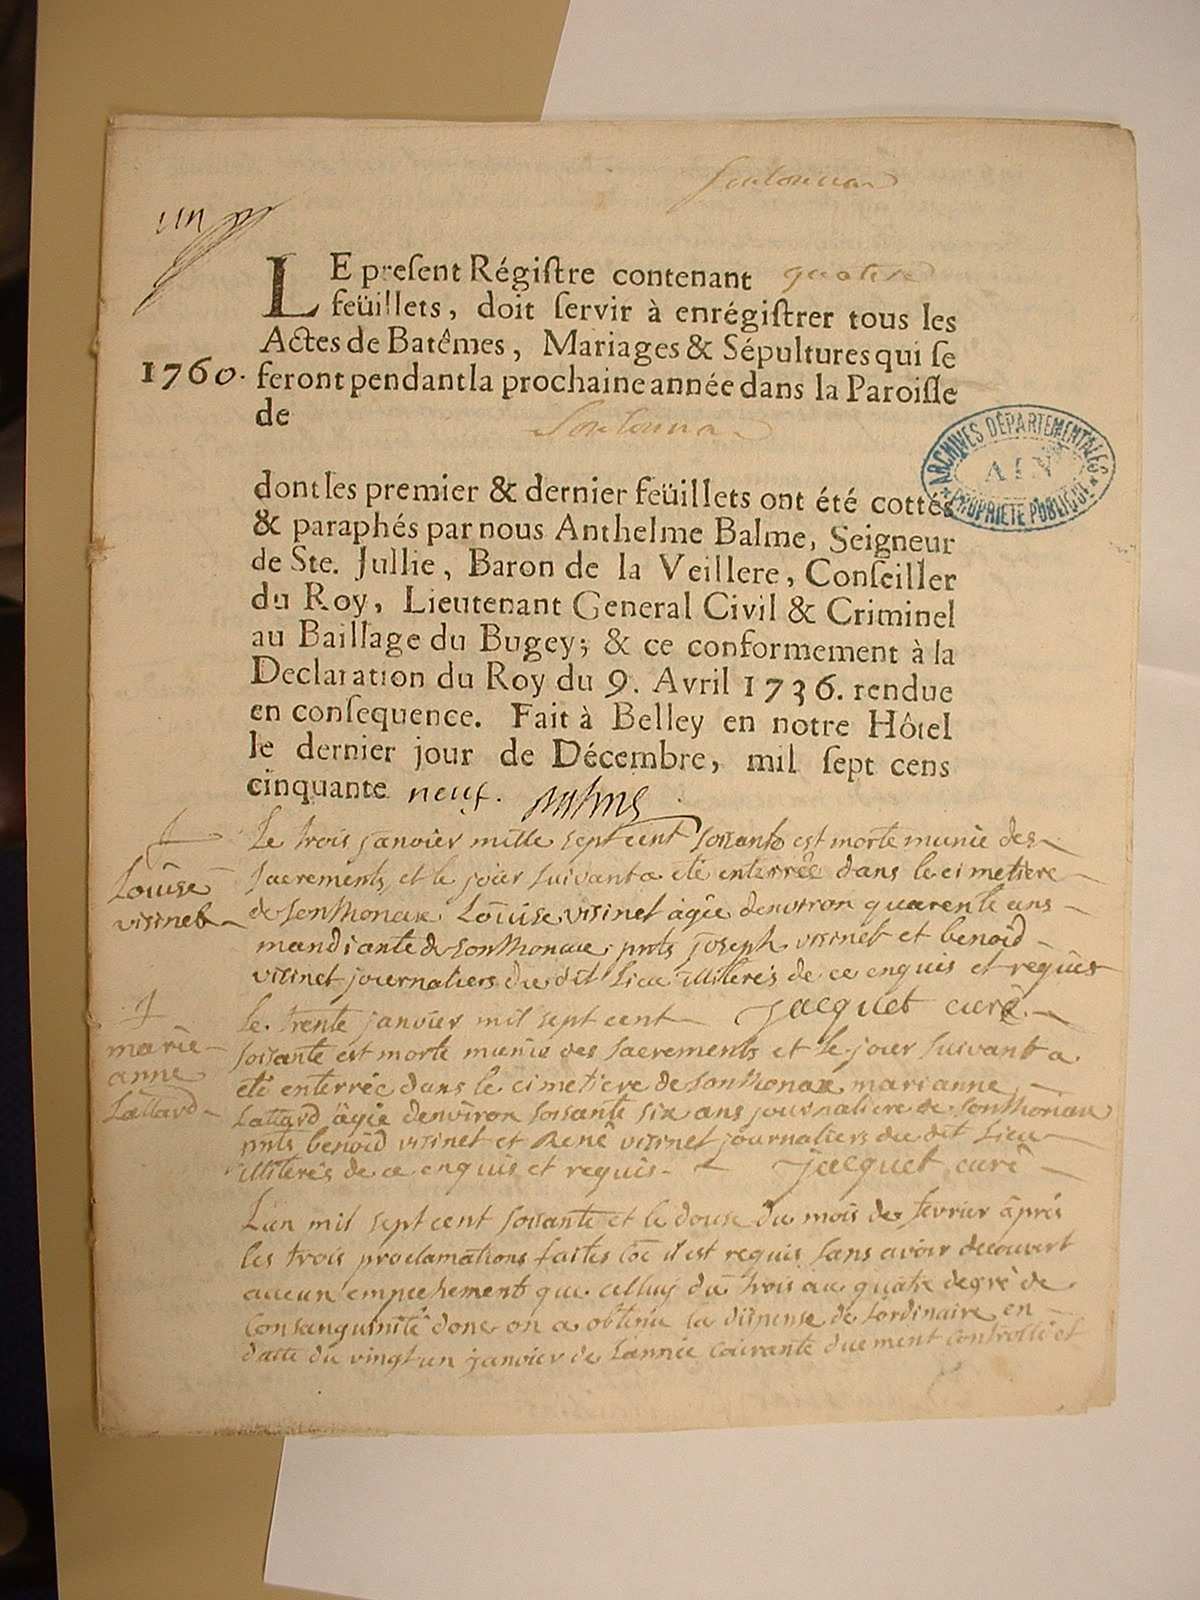 un
LE present Régistre contenant
feüillets, doit servir à enrégistrer tous les
Actes de Batêmes, Mariages & Sépultures qui se
1760. feront pendant la prochaine année dans la Paroisse
de
ARCHIVES DÉPARTEMENTALES
AIN
PROPRIÉTÉ PUBLIQUE
dont les premier & dernier feüillets ont été cottés
& paraphés par nous Anthelme Balme, Seigneur
de Ste. Jullie, Baron de la Veillere, Conseiller
du Roy, Lieutenant General Civil & Criminel
au Baillage du Bugey; & ce conformement à la
Declaration du Roy du 9. Avril 1736. rendue
en consequence. Fait à Belley en notre Hôtel
le dernier jour de Décembre, mil sept cens
cinquante neuf. Balme
Le trois janvier mille sept cent soisante est morte munie des
Louise
visinet
sacrements et le jour suivant a été enterrée dans le cimetiere
de sonthonax Louise visinet agée denviron quarente ans
mandiante de sonthonax, pnts joseph visinet et benoid
visinet journaliers du dit lieu illiterés de ce enquis et requis
jacquet curé
marie
anne
Lattard
le trente janvier mil sept cent
soisante est morte munie des sacrements et le jour suivant a
été enterrée dans le cimetiere de sonthonax marianne
Lattard agée denviron soisante six ans journaliere de sonthonax
pnts benoid visinet et René visinet journaliers du dit lieu
illiterés de ce enquis et requis jacquet curé
L'an mil sept cent soisante et le douse du mois de fevrier après
les trois proclamations faites il est requis sans avoir decouvert
aucun empechement que celluy du trois au quatre degré de
Consanguinité donc on a obtenu la dispense de lordinaire en
datte du vingt un janvier de lannée courante duement controllé et